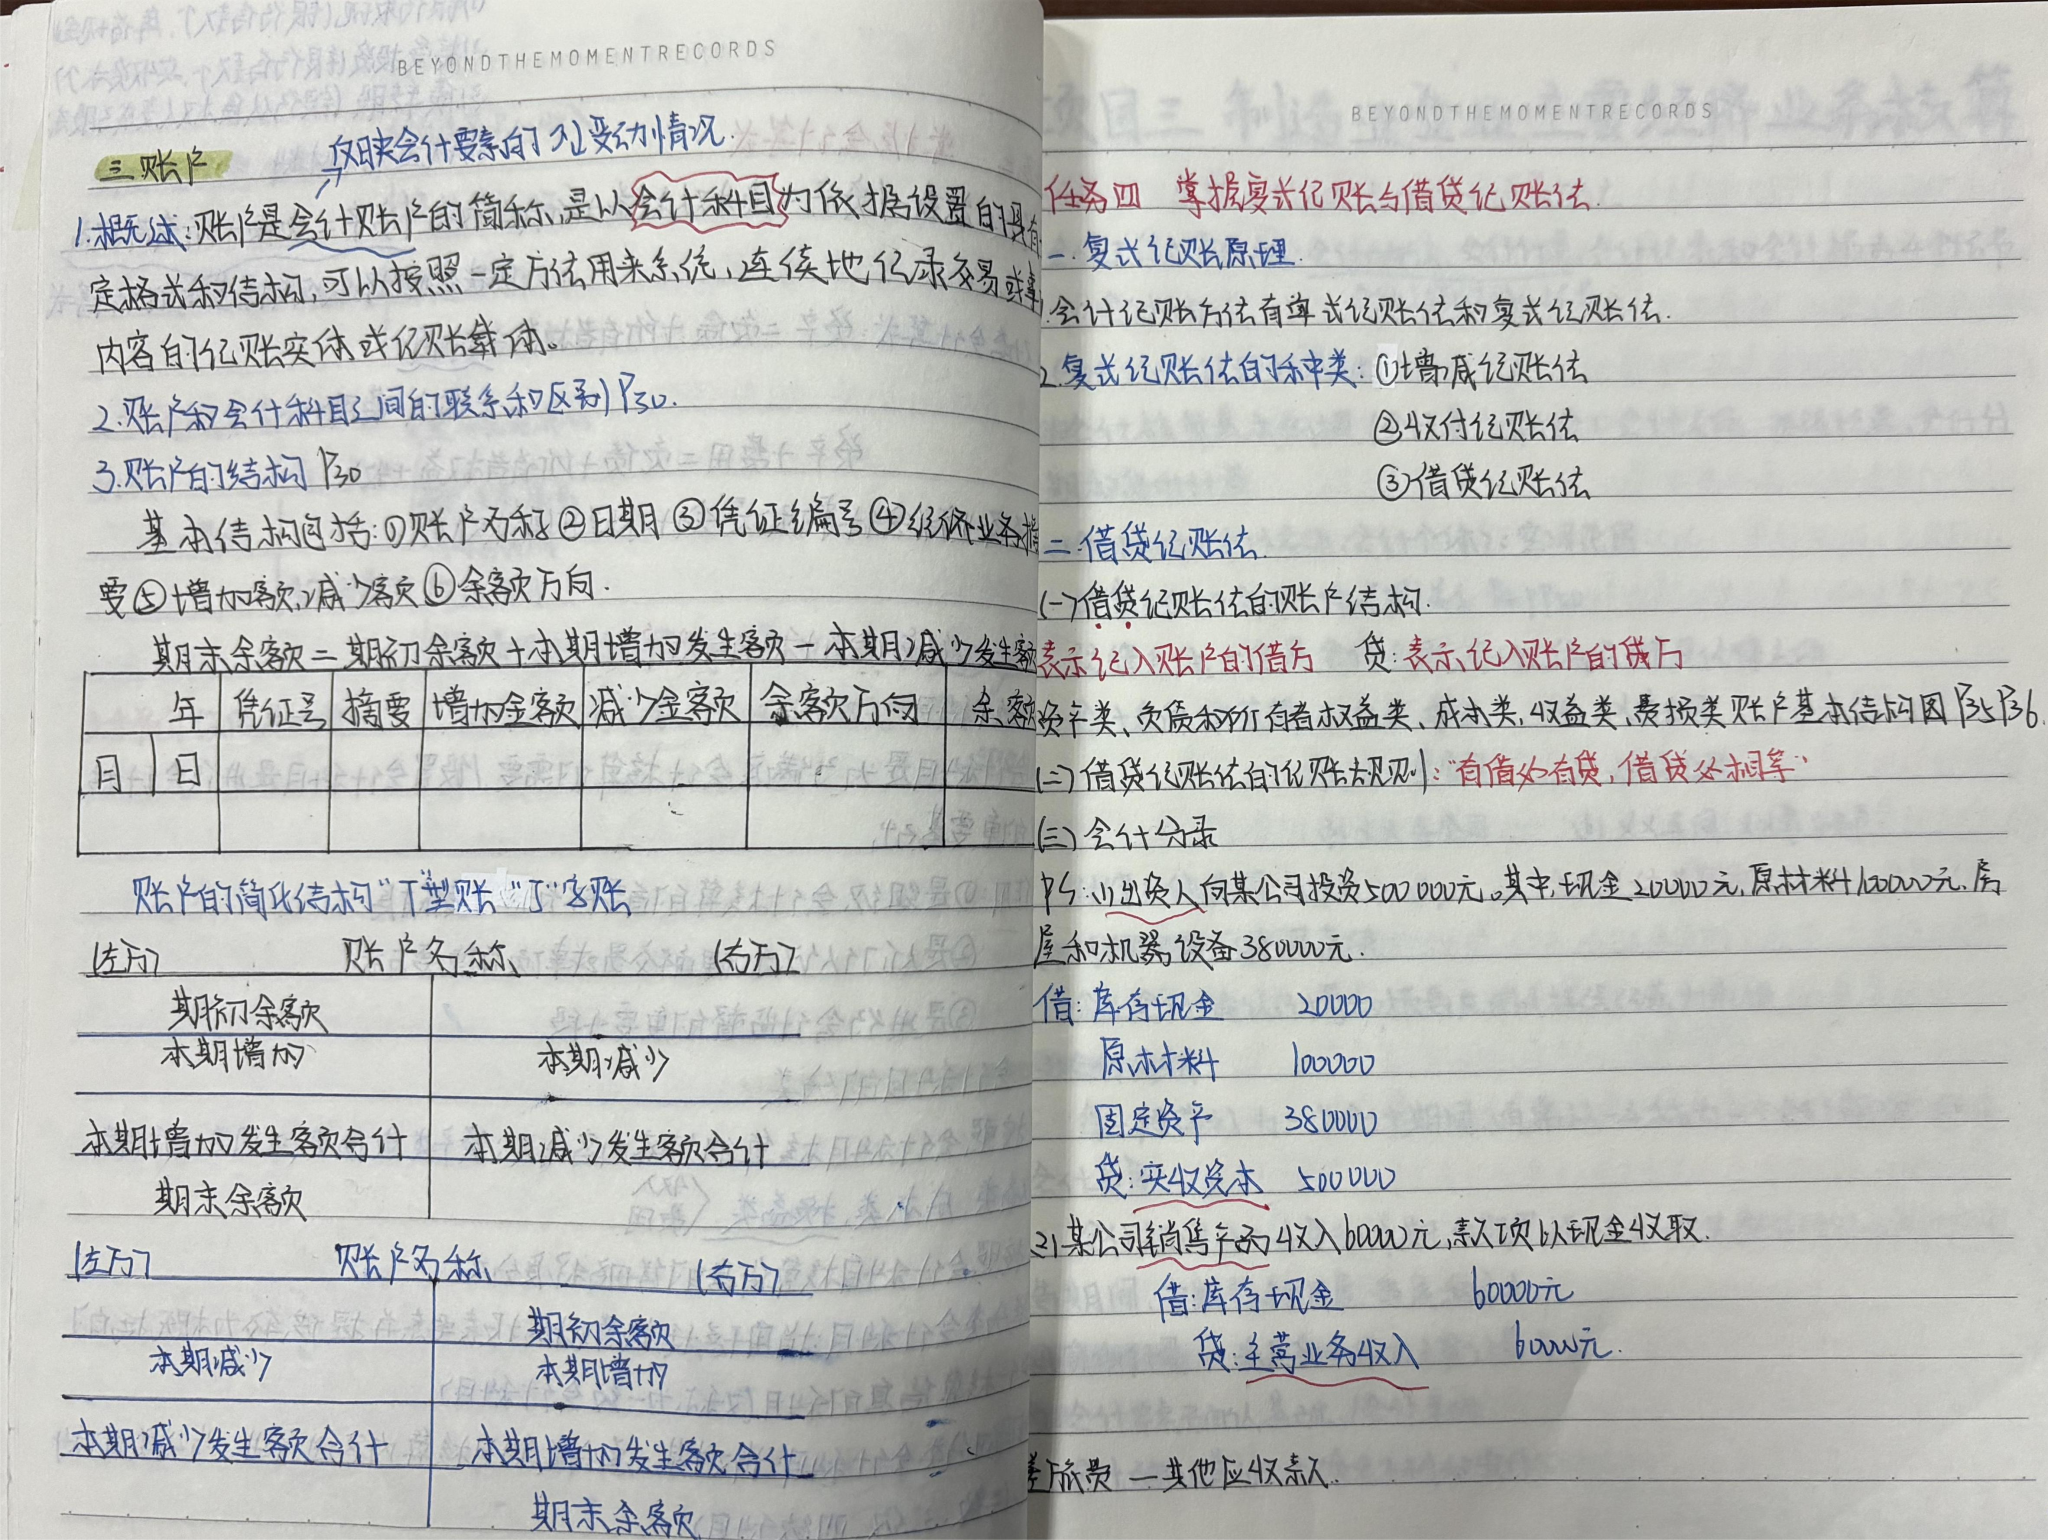 BEYONDTHEMOMENTRECORDS
反映会计要素的 变动情况.
三.账户
1.概述:账户是会计账户的简称,是以会计科目为依据设置的具有
定格式和结构,可以按照一定方法用来系统、连续地记录交易或事
内容的记账实体或记账载体。
2.账户和会计科目之间的联系和区别 P30.
3.账户的结构 P30
基本结构包括:①账户名称②日期③凭证编号④经济业务摘
要⑤增加额,减少额⑥余额方向.
期末余额=期初余额+本期增加发生额-本期减少发生额
年 凭证号 摘要 增加金额 减少金额 余额方向 余额
月 日
账户的简化结构"T"型账 "丁"字账
(左方) 账户名称 (右方)
期初余额
本期增加 本期减少
本期增加发生额合计 本期减少发生额合计
期末余额
(左方) 账户名称 (右方)
期初余额
本期减少 本期增加
本期减少发生额合计 本期增加发生额合计
期末余额
BEYONDTHEMOMENTRECORDS
任务四 掌握复式记账与借贷记账法.
一.复式记账原理.
.会计记账方法有单式记账法和复式记账法.
2.复式记账法的种类:①增减记账法
②收付记账法
③借贷记账法
二.借贷记账法.
(一)借贷记账法的账户结构.
表示记入账户的借方 贷:表示记入账户的贷方
资产类、负债和所有者权益类、成本类,收益类、费损类账户基本结构图 P35P36.
(二)借贷记账法的记账规则:"有借必有贷,借贷必相等"
(三)会计分录
P5:(1)出资人向某公司投资500000元。其中,现金20000元,原材料100000元,房
屋和机器设备380000元.
借:库存现金 20000
原材料 100000
固定资产 380000
贷:实收资本 500000
2).某公司销售产品收入60000元,款项以现金收取.
借:库存现金 60000元
贷:主营业务收入 60000元.
差旅费 — 其他应收款.